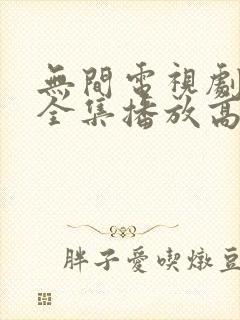 無間電視劇
全集播放高
胖子愛喫燉豆